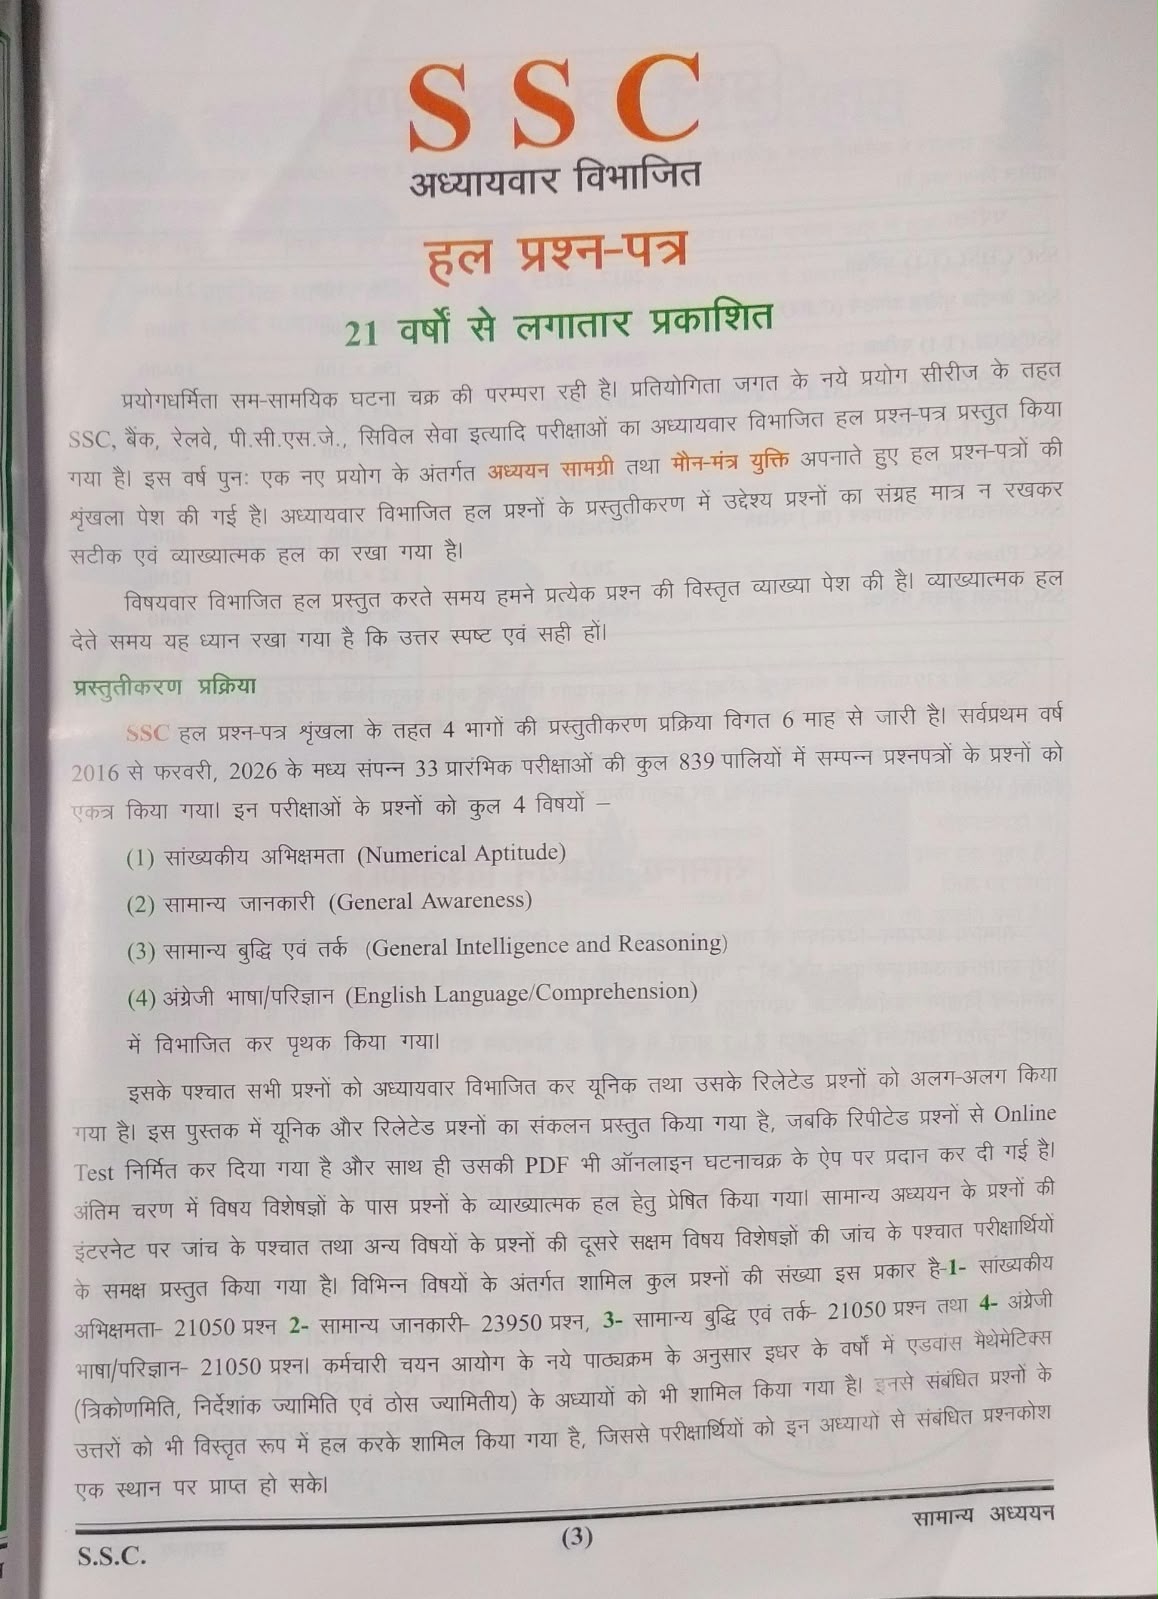 S S C
अध्यायवार विभाजित
हल प्रश्न-पत्र
21 वर्षों से लगातार प्रकाशित
प्रयोगधर्मिता सम-सामयिक घटना चक्र की परम्परा रही है। प्रतियोगिता जगत के नये प्रयोग सीरीज के तहत
SSC, बैंक, रेलवे, पी.सी.एस.जे., सिविल सेवा इत्यादि परीक्षाओं का अध्यायवार विभाजित हल प्रश्न-पत्र प्रस्तुत किया
गया है। इस वर्ष पुनः एक नए प्रयोग के अंतर्गत अध्ययन सामग्री तथा मौन-मंत्र युक्ति अपनाते हुए हल प्रश्न-पत्रों की
शृंखला पेश की गई है। अध्यायवार विभाजित हल प्रश्नों के प्रस्तुतीकरण में उद्देश्य प्रश्नों का संग्रह मात्र न रखकर
सटीक एवं व्याख्यात्मक हल का रखा गया है।
विषयवार विभाजित हल प्रस्तुत करते समय हमने प्रत्येक प्रश्न की विस्तृत व्याख्या पेश की है। व्याख्यात्मक हल
देते समय यह ध्यान रखा गया है कि उत्तर स्पष्ट एवं सही हों।
प्रस्तुतीकरण प्रक्रिया
SSC हल प्रश्न-पत्र शृंखला के तहत 4 भागों की प्रस्तुतीकरण प्रक्रिया विगत 6 माह से जारी है। सर्वप्रथम वर्ष
2016 से फरवरी, 2026 के मध्य संपन्न 33 प्रारंभिक परीक्षाओं की कुल 839 पालियों में सम्पन्न प्रश्नपत्रों के प्रश्नों को
एकत्र किया गया। इन परीक्षाओं के प्रश्नों को कुल 4 विषयों –
(1) सांख्यकीय अभिक्षमता (Numerical Aptitude)
(2) सामान्य जानकारी (General Awareness)
(3) सामान्य बुद्धि एवं तर्क (General Intelligence and Reasoning)
(4) अंग्रेजी भाषा/परिज्ञान (English Language/Comprehension)
में विभाजित कर पृथक किया गया।
इसके पश्चात सभी प्रश्नों को अध्यायवार विभाजित कर यूनिक तथा उसके रिलेटेड प्रश्नों को अलग-अलग किया
गया है। इस पुस्तक में यूनिक और रिलेटेड प्रश्नों का संकलन प्रस्तुत किया गया है, जबकि रिपीटेड प्रश्नों से Online
Test निर्मित कर दिया गया है और साथ ही उसकी PDF भी ऑनलाइन घटनाचक्र के ऐप पर प्रदान कर दी गई है।
अंतिम चरण में विषय विशेषज्ञों के पास प्रश्नों के व्याख्यात्मक हल हेतु प्रेषित किया गया। सामान्य अध्ययन के प्रश्नों की
इंटरनेट पर जांच के पश्चात तथा अन्य विषयों के प्रश्नों की दूसरे सक्षम विषय विशेषज्ञों की जांच के पश्चात परीक्षार्थियों
के समक्ष प्रस्तुत किया गया है। विभिन्न विषयों के अंतर्गत शामिल कुल प्रश्नों की संख्या इस प्रकार है-1- सांख्यकीय
अभिक्षमता- 21050 प्रश्न 2- सामान्य जानकारी- 23950 प्रश्न, 3- सामान्य बुद्धि एवं तर्क- 21050 प्रश्न तथा 4- अंग्रेजी
भाषा/परिज्ञान- 21050 प्रश्न। कर्मचारी चयन आयोग के नये पाठ्यक्रम के अनुसार इधर के वर्षों में एडवांस मैथेमेटिक्स
(त्रिकोणमिति, निर्देशांक ज्यामिति एवं ठोस ज्यामितीय) के अध्यायों को भी शामिल किया गया है। इनसे संबंधित प्रश्नों के
उत्तरों को भी विस्तृत रूप में हल करके शामिल किया गया है, जिससे परीक्षार्थियों को इन अध्यायों से संबंधित प्रश्नकोश
एक स्थान पर प्राप्त हो सके।
S.S.C.
(3)
सामान्य अध्ययन